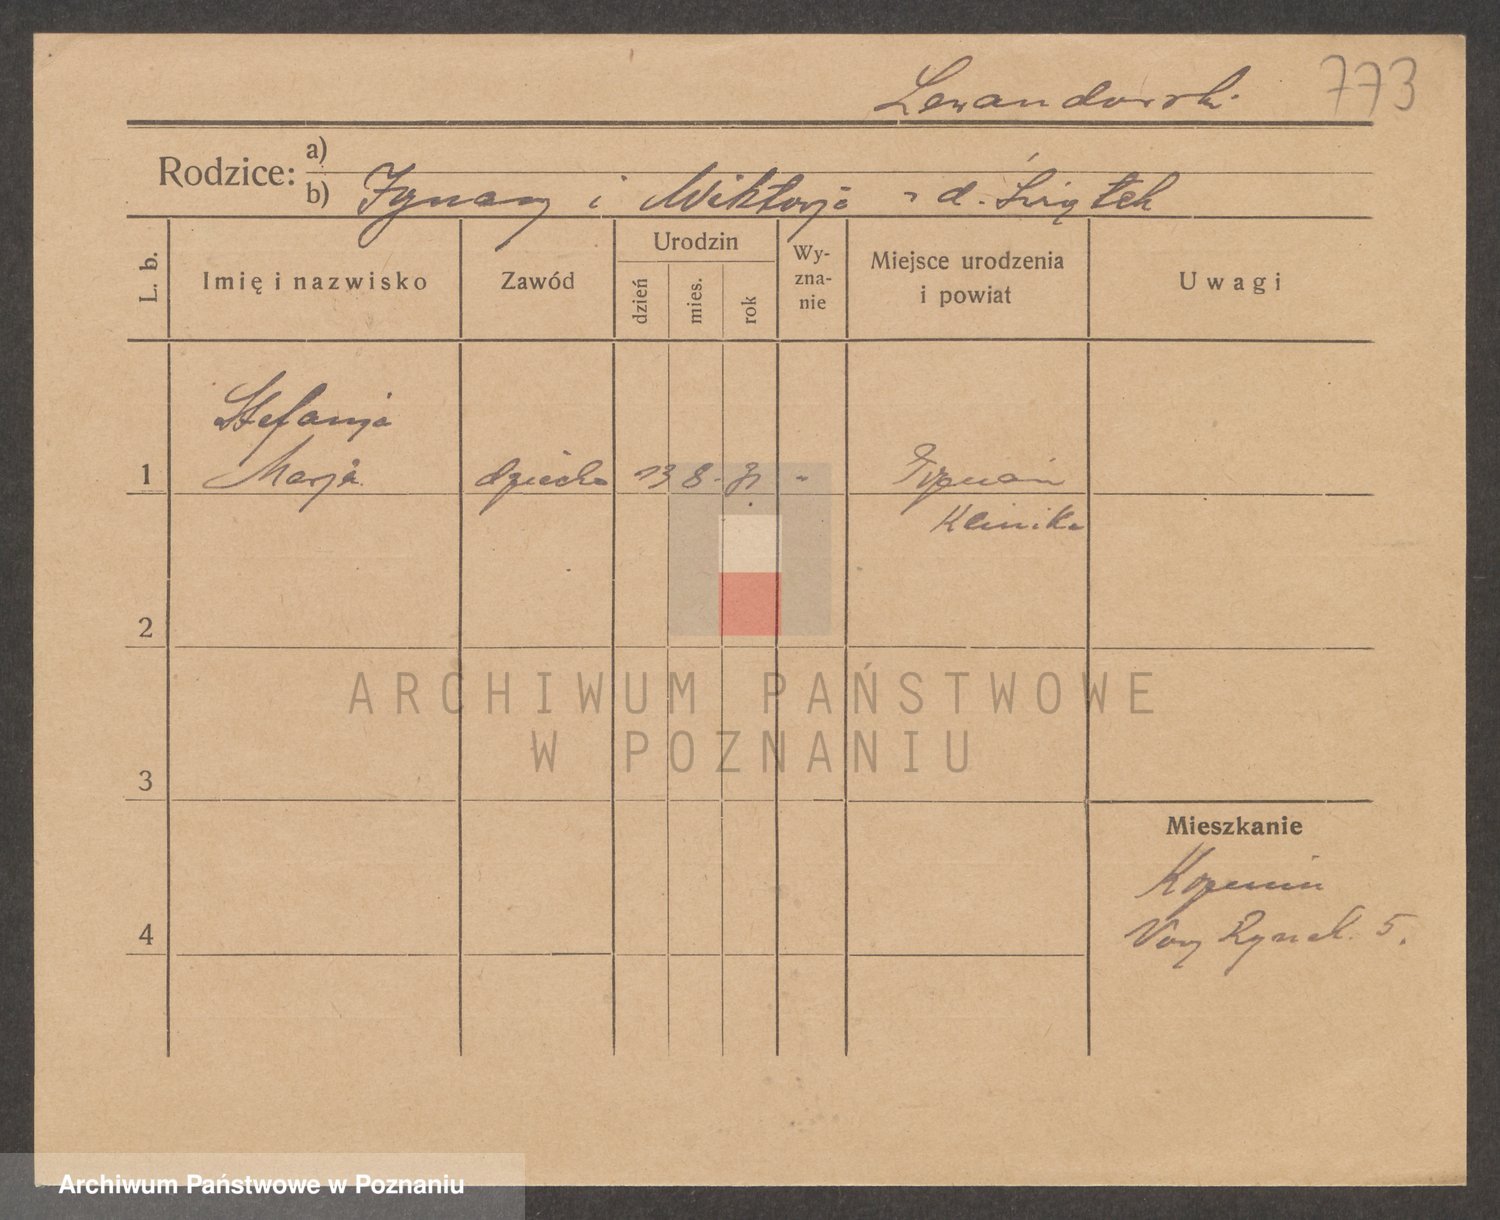 Lewandowski
773
Rodzice: a)
b) Ignacy i Wiktorja z d. Świątek
L. b.
Imię i nazwisko
Zawód
Urodzin
dzień
mies.
rok
Wy-
zna-
nie
Miejsce urodzenia
i powiat
Uwagi
Stefanja
1 Marja dziecko 13 8. 31 "
Klinika
2
3
4
Mieszkanie
Rynek 5.
ARCHIWUM PAŃSTWOWE
W POZNANIU
Archiwum Państwowe w Poznaniu